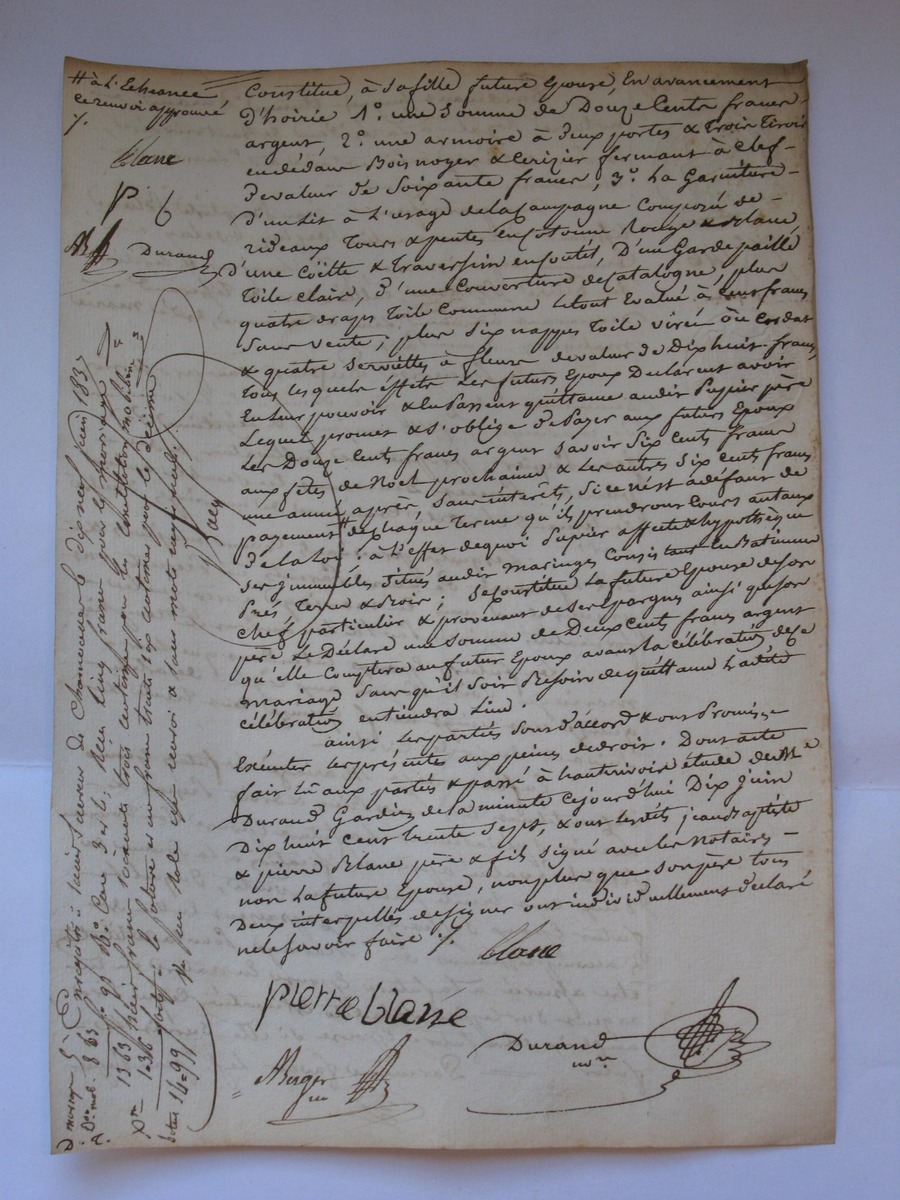 # à L'Echeance
ce renvoi approuvé
/.
blanc
P. b
Durand
Constitue, à sa fille future Epouse, En avancement
D'hoirie 1° une Somme de Douze Cents francs
argent, 2° une armoire à deux portes & trois tiroirs
en dedans Bois noyer & Cerizier fermant à Clef
de valeur de Soixante francs, 3° La Garniture
D'un Lit à L'usage de la Campagne Composé de
rideaux Tours & pentes en Cotonne Rouge & Blanc
D'une Coëtte & Traversin en Coutil, D'un Garde paille
Toile Claire, D'une Couverture de Catalogne, plus
quatre draps Toile Commune Le tout Evalué à Cent francs
Sans Vente; plus Six nappes Toile virée ou Cordat
& quatre Serviettes à fleurs de valeur de Dix huit francs
Tous Lesquels Effets Les futurs Epoux Déclarent avoir
En Leur pouvoir & En Passent quittance audit Papier père
Lequel promet & S'oblige De Payer aux futurs Epoux
Les Douze Cents francs argent Savoir Six Cents francs
aux fêtes de Noël prochaine & Les autres Six Cents francs
une année après, Sans intérêts, Si ce n'est à défaut de
payement # de Chaque Terme qu'ils prendront Cours au taux
De la Loi: à L'effet de quoi Papier affecte & hypothèque
Ses immeubles Situés audit Maringes Consistant En Batiments
Prés Terres & Bois; Se Constitue La future Epouse de Son
Chef particulier & provenant de Ses Epargnes ainsi que Son
père Le Déclare une Somme de Deux Cents francs argent
qu'elle Comptera au futur Epoux avant La Célébration de Ce
mariage Sans qu'il Soit Besoin de quittance Ladite
Célébration en tiendra Lieu.
ainsi Les parties Sont D'accord & ont Promis
Exécuter Les présentes aux peines de droit. Dont acte
fait Lu aux parties & passé à hauterivoire étude de Me
Durand Gardien de la minute Cejourd'hui Dix Juin
Dix huit Cent trente Sept, & ont Lesdits jean Baptiste
& pierre Blanc père & fils Signé avec Les Notaires
non La future Epouse, non plus que Son père Tous
Deux interpellés de Signer ont individuellement déclaré
ne le Savoir faire /.
blanc
pierre blanse
Durand
nre
Berger
Enregistré à Saint Laurent de Chamousset le dix neuf juin 1837
cinq francs pour le mariage
huit francs soixante trois centimes pour la constitution mobilière
un franc trente six centimes pour le décime